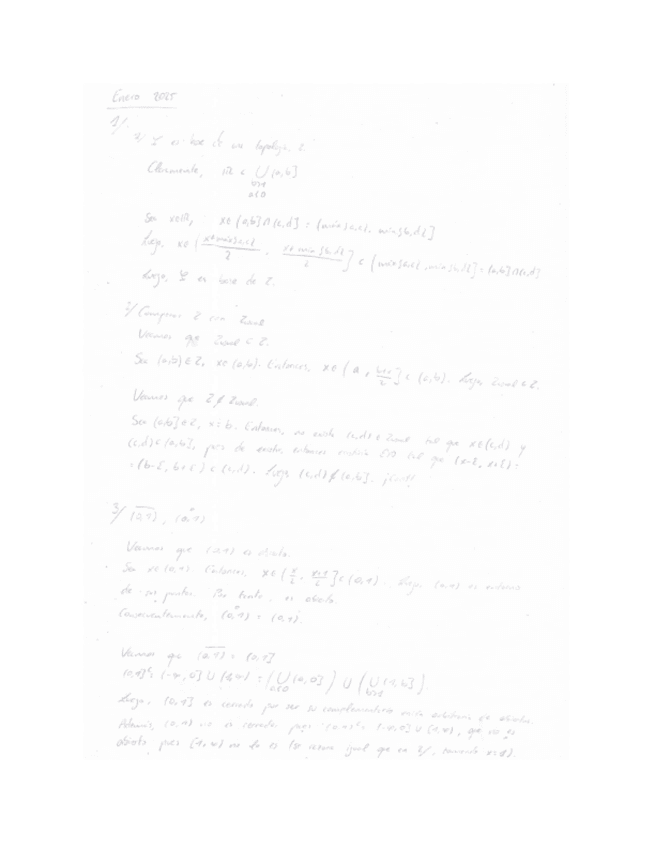 Enero 2025
1/.
a/ Ψ es base de una topología τ.
Claramente, ℝ ⊂ ⋃ (a,b]
b>a
a<0
Sea x∈ℝ, x∈(a,b]∩(c,d] = (min{a,c}, min{b,d}]
Luego, x∈ ( x+min{a,c} / 2 , x+min{b,d} / 2 ] ⊂ (min{a,c}, min{b,d}] = (a,b]∩(c,d]
Luego, Ψ es base de τ.
2/ Comparar τ con τusual
Veamos que τusual ⊂ τ.
Sea (a,b)∈τ, x∈(a,b). Entonces, x∈(a, b+x / 2] ⊂ (a,b). Luego τusual ⊂ τ.
Veamos que τ ⊄ τusual
Sea (a,b]∈τ, x=b. Entonces, no existe (c,d)∈τusual tal que x∈(c,d) y
(c,d)⊂(a,b], pues de existir, entonces existiría ε>0 tal que (x-ε, x+ε) =
=(b-ε, b+ε) ⊂ (c,d). Luego (c,d) ⊄ (a,b].
3/ (0,1), (0,1)
Veamos que (0,1) es abierto.
Sea x∈(0,1). Entonces, x∈( x/2, x+1/2 ] ⊂ (0,1). Luego (0,1) es entorno
de sus puntos. Por tanto, es abierto.
Consecuentemente, (0,1) = (0,1).
Veamos que (0,1) = (0,1]
(0,1]ᶜ = (-∞,0] ∪ (1,∞) = (⋃ (a,0]) ∪ (⋃ (1,b]).
a<0 b>1
Luego, (0,1] es cerrado por ser su complementario unión arbitraria de abiertos.
Además, (0,1) no es cerrado pues (0,1)ᶜ = (-∞,0] ∪ [1,∞), que no es
abierto pues [1,∞) no lo es (se razona igual que en 2/, tomando x=1).